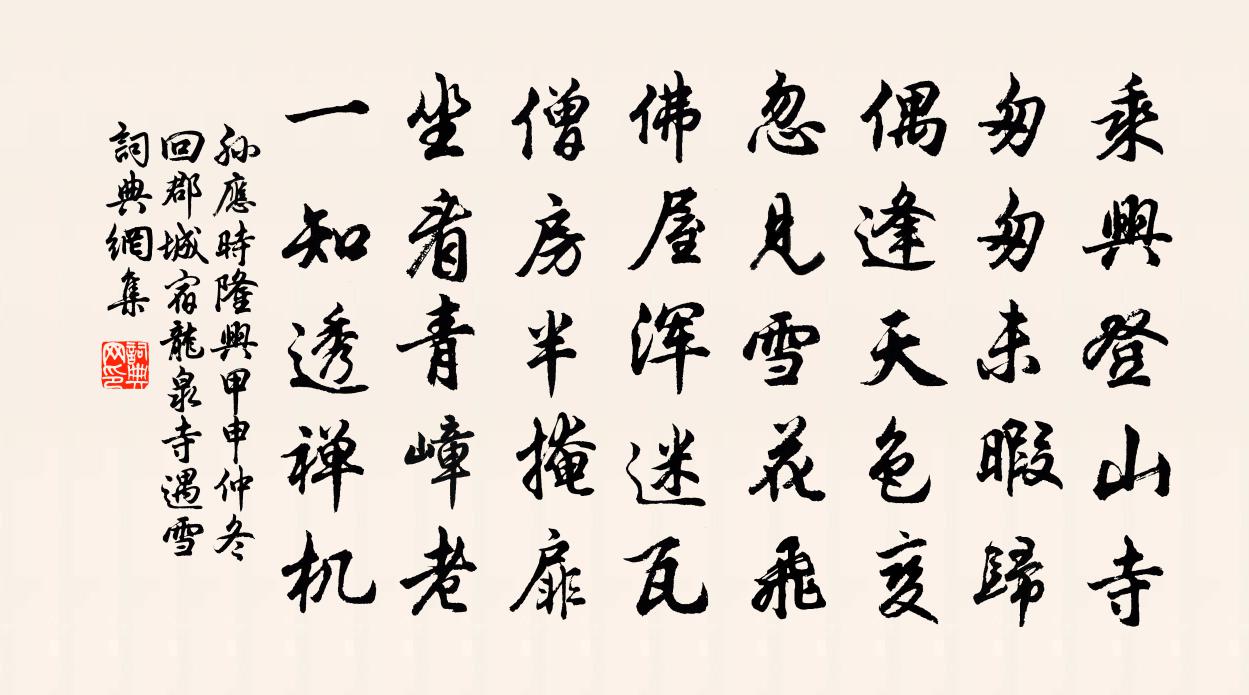 乘興登山寺
匆匆未暇歸
偶逢天色变
忽見雪花飛
佛屋浑迷瓦
僧房半掩扉
坐看青嶂老
一知透禅机
孙應時隆興甲申仲冬
回郡城宿龍泉寺遇雪
詞典網集
詞典网印